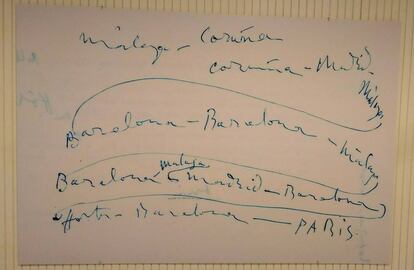 Málaga - Coruña
Coruña - Madrid - Málaga
Barcelona - Barcelona - Málaga
Barcelona - malaga - Madrid - Barcelona
Barcelona - PARIS